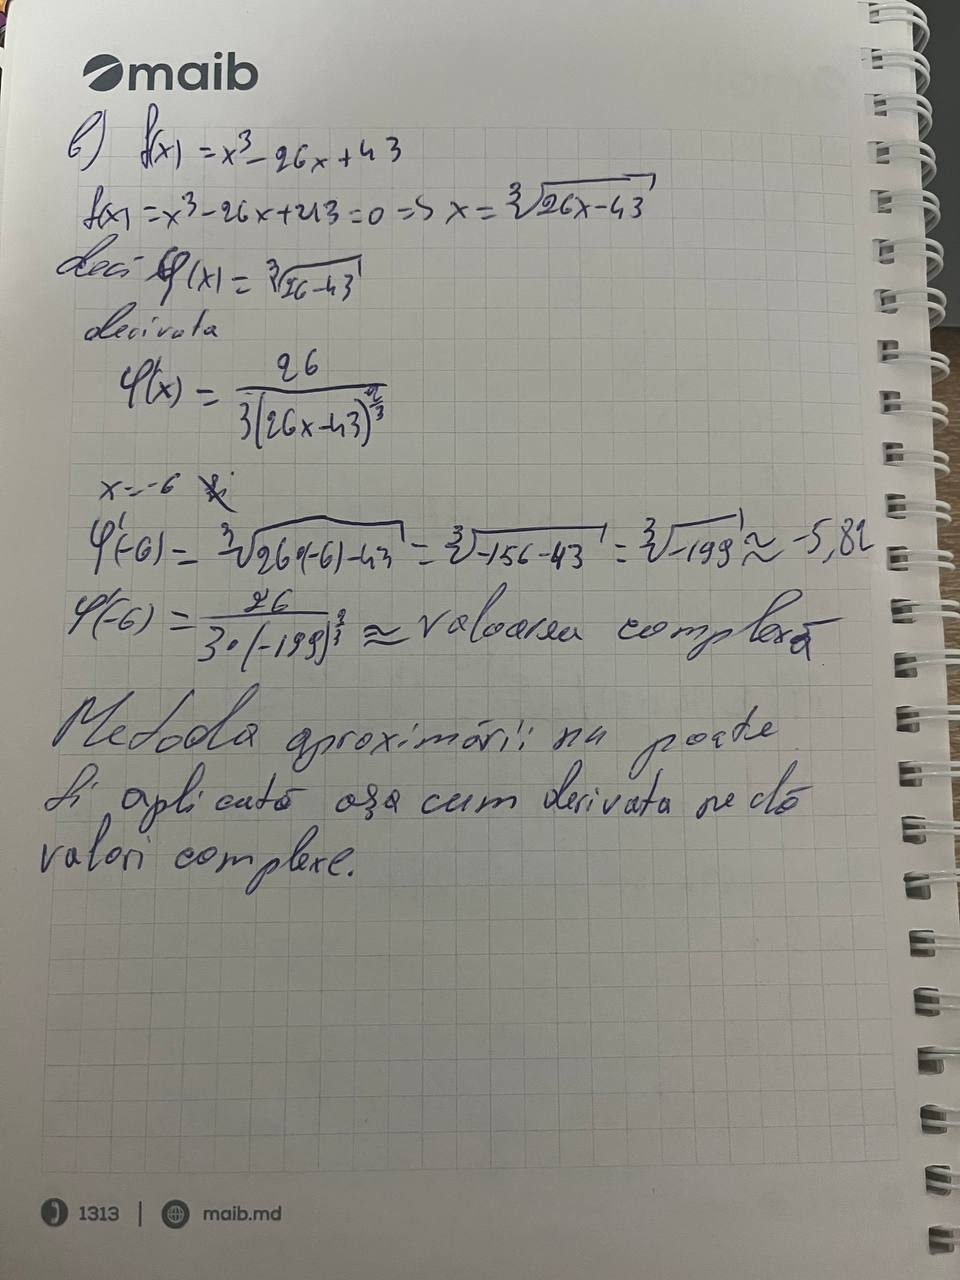 maib
b) f(x) = x³ - 26x + 43
f(x) = x³ - 26x + 43 = 0 => x = ∛(26x - 43)
deci φ(x) = ∛(26 - 43)
derivata
φ'(x) = 26 / 3(26x - 43)^(2/3)
x = -6
φ'(-6) = ∛(26·(-6) - 43) = ∛(-156 - 43) = ∛(-199) ≈ -5,82
φ'(-6) = 26 / 3·(-199)^(2/3) ≈ valoarea complexă
Metoda aproximării nu poate
fi aplicată așa cum derivata ne dă
valori complexe.
1313 | maib.md